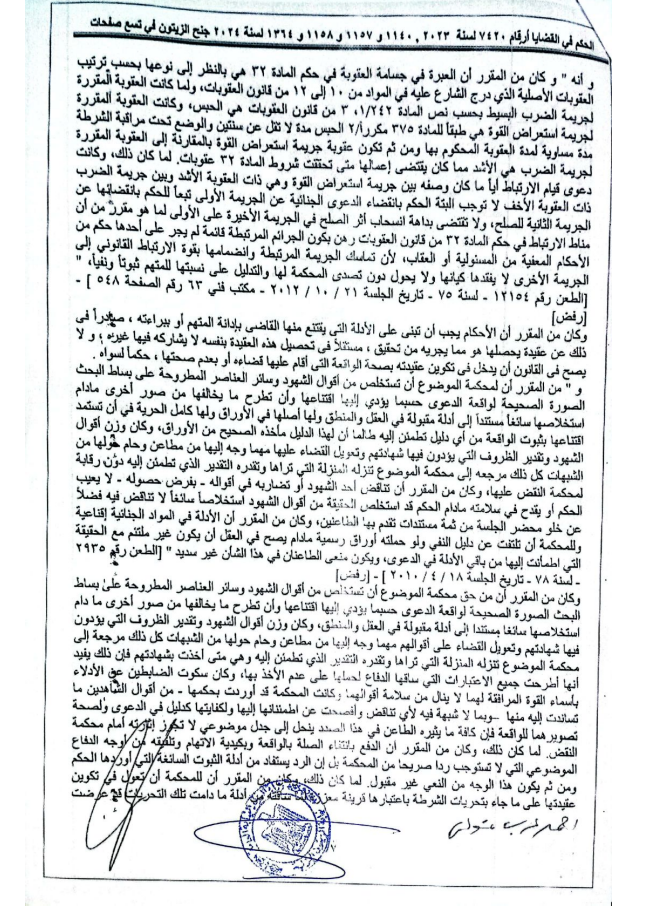 الحكم في القضايا أرقام ٧٤٢٠ لسنة ٢٠٢٣ , ١١٤٠ و ١١٥٧ و ١١٥٨ و ١٣٦٤ لسنة ٢٠٢٤ جنح الزيتون في تسع صفحات
و أنه " و كان من المقرر أن العبرة في جسامة العقوبة في حكم المادة ٣٢ هي بالنظر إلى نوعها بحسب ترتيب
العقوبات الأصلية الذي درج الشارع عليه في المواد من ١٠ إلى ١٢ من قانون العقوبات، ولما كانت العقوبة المقررة
لجريمة الضرب البسيط بحسب نص المادة ١/٢٤٢، ٣ من قانون العقوبات هي الحبس، وكانت العقوبة المقررة
لجريمة استعراض القوة هي طبقاً للمادة ٣٧٥ مكرراً/٢ الحبس مدة لا تقل عن سنتين والوضع تحت مراقبة الشرطة
مدة مساوية لمدة العقوبة المحكوم بها ومن ثم تكون عقوبة جريمة استعراض القوة بالمقارنة إلى العقوبة المقررة
لجريمة الضرب هي الأشد مما كان يقتضى إعمالها متى تحققت شروط المادة ٣٢ عقوبات. لما كان ذلك، وكانت
دعوى قيام الارتباط أياً ما كان وصفه بين جريمة استعراض القوة وهي ذات العقوبة الأشد وبين جريمة الضرب
ذات العقوبة الأخف لا توجب البتة الحكم بانقضاء الدعوى الجنائية عن الجريمة الأولى تبعاً للحكم بانقضائها عن
الجريمة الثانية للصلح، ولا تقتضى بداهة انسحاب أثر الصلح في الجريمة الأخيرة على الأولى لما هو مقرر من أن
مناط الارتباط في حكم المادة ٣٢ من قانون العقوبات رهن بكون الجرائم المرتبطة قائمة لم يجر على أحدها حكم من
الأحكام المعفية من المسئولية أو العقاب، لأن تماسك الجريمة المرتبطة وانضمامها بقوة الارتباط القانوني إلى
الجريمة الأخرى لا يفقدها كيانها ولا يحول دون تصدى المحكمة لها والتدليل على نسبتها للمتهم ثبوتاً ونفياً، "
[الطعن رقم ١٢١٥٤ - لسنة ٧٥ - تاريخ الجلسة ٢١ / ١٠ / ٢٠١٢ - مكتب فني ٦٣ رقم الصفحة ٥٤٨ ] -
[رفض]
وكان من المقرر أن الأحكام يجب أن تبنى على الأدلة التي يقتنع منها القاضى بإدانة المتهم أو ببراءته ، صادراً في
ذلك عن عقيدة يحصلها هو مما يجريه من تحقيق ، مستقلاً في تحصيل هذه العقيدة بنفسه لا يشاركه فيها غيره ، و لا
يصح في القانون أن يدخل في تكوين عقيدته بصحة الواقعة التي أقام عليها قضاءه أو بعدم صحتها ، حكماً لسواه .
و " من المقرر أن لمحكمة الموضوع أن تستخلص من أقوال الشهود وسائر العناصر المطروحة على بساط البحث
الصورة الصحيحة لواقعة الدعوى حسبما يؤدى إليها اقتناعها وأن تطرح ما يخالفها من صور أخرى مادام
استخلاصها سائغاً مستنداً إلى أدلة مقبولة في العقل والمنطق ولها أصلها في الأوراق ولها كامل الحرية في أن تستمد
اقتناعها بثبوت الواقعة من أي دليل تطمئن إليه طالما أن لهذا الدليل مأخذه الصحيح من الأوراق، وكان وزن أقوال
الشهود وتقدير الظروف التي يؤدون فيها شهادتهم وتعويل القضاء عليها مهما وجه إليها من مطاعن وحام حولها من
الشبهات كل ذلك مرجعه إلى محكمة الموضوع تنزله المنزلة التي تراها وتقدره التقدير الذي تطمئن إليه دون رقابة
لمحكمة النقض عليها، وكان من المقرر أن تناقض أحد الشهود أو تضاربه في أقواله - بفرض حصوله - لا يعيب
الحكم أو يقدح في سلامته مادام الحكم قد استخلص الحقيقة من أقوال الشهود استخلاصاً سائغاً لا تناقض فيه فضلاً
عن خلو محضر الجلسة من ثمة مستندات تقدم بها الطاعنين، وكان من المقرر أن الأدلة في المواد الجنائية إقناعية
وللمحكمة أن تلتفت عن دليل النفي ولو حملته أوراق رسمية مادام يصح في العقل أن يكون غير ملتئم مع الحقيقة
التي اطمأنت إليها من باقي الأدلة في الدعوى، ويكون منعى الطاعنان في هذا الشأن غير سديد " [الطعن رقم ٢٩٣٥
- لسنة ٧٨ - تاريخ الجلسة ١٨ / ٤ / ٢٠١٠ ] - [رفض]
وكان من المقرر أن من حق محكمة الموضوع أن تستخلص من أقوال الشهود وسائر العناصر المطروحة على بساط
البحث الصورة الصحيحة لواقعة الدعوى حسبما يؤدي إليها اقتناعها وأن تطرح ما يخالفها من صور أخرى ما دام
استخلاصها سائغا مستندا إلى أدلة مقبولة في العقل والمنطق، وكان وزن أقوال الشهود وتقدير الظروف التي يؤدون
فيها شهادتهم وتعويل القضاء على أقوالهم مهما وجه إليها من مطاعن وحام حولها من الشبهات كل ذلك مرجعة إلى
محكمة الموضوع تنزله المنزلة التي تراها وتقدره التقدير الذي تطمئن إليه وهي متى أخذت بشهادتهم فإن ذلك يفيد
أنها أطرحت جميع الاعتبارات التي ساقها الدفاع لحملها على عدم الأخذ بها، وكان سكوت الضابطين عن الأدلاء
بأسماء القوة المرافقة لهما لا ينال من سلامة أقوالهما وكانت المحكمة قد أوردت بحكمها - من أقوال الشاهدين ما
تساندت إليه منها -وبما لا شبهة فيه لأي تناقض وأفصحت عن اطمئنانها إليها ولكفايتها كدليل في الدعوى ولصحة
تصويرهما للواقعة فإن كافة ما يثيره الطاعن في هذا الصدد ينحل إلى جدل موضوعي لا تجوز إثارته أمام محكمة
النقض. لما كان ذلك، وكان من المقرر أن الدفع بانتفاء الصلة بالواقعة وبكيدية الاتهام وتلفيقه من أوجه الدفاع
الموضوعي التي لا تستوجب ردا صريحا من المحكمة بل إن الرد يستفاد من أدلة الثبوت السائغة التي أوردها الحكم
ومن ثم يكون هذا الوجه من النعي غير مقبول. لما كان ذلك، وكان من المقرر أن للمحكمة أن تعول في تكوين
عقيدتها على ما جاء بتحريات الشرطة باعتبارها قرينة معززة لما ساقته من أدلة ما دامت تلك التحريات قد عرضت